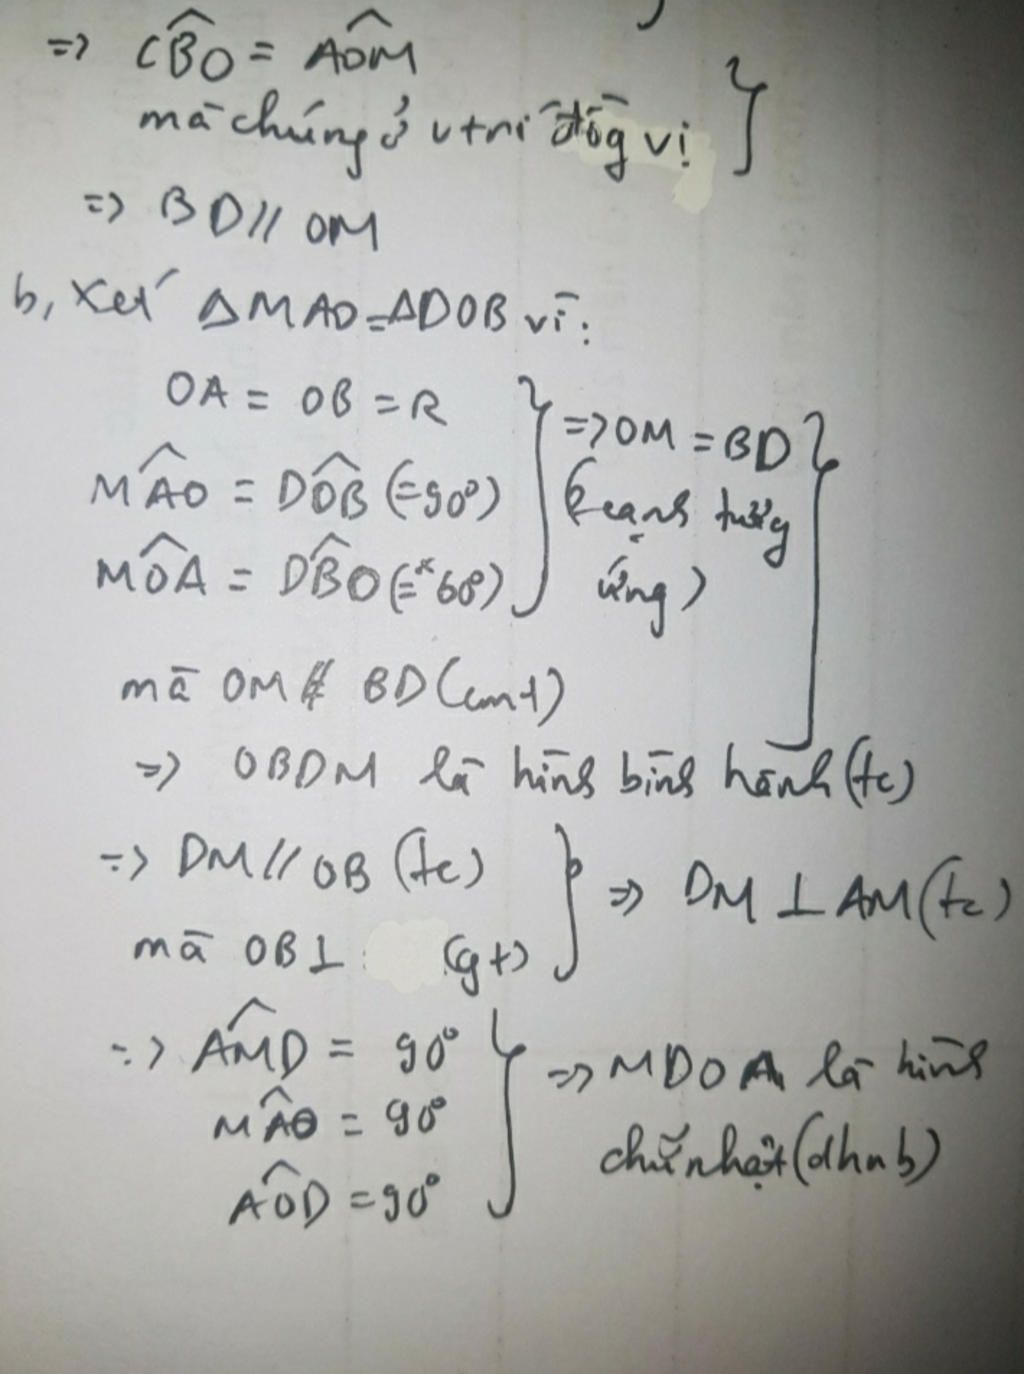 => CB̂O = AÔM
mà chúng ở vtrí đồg vị
=> BD // OM
b, Xét ΔMAO = ΔDOB vì:
OA = OB = R
MÂO = DÔB (=90°)
MÔA = DB̂O (= 60°)
=> OM = BD
cạnh tương
ứng)
mà OM // BD (cmt)
=> OBDM là hình bình hành (tc)
=> DM // OB (tc)
mà OB ⊥ (gt)
=> DM ⊥ AM (tc)
=> AM̂D = 90°
MÂO = 90°
AÔD = 90°
=> MDOA là hình
chữ nhật (dhnb)